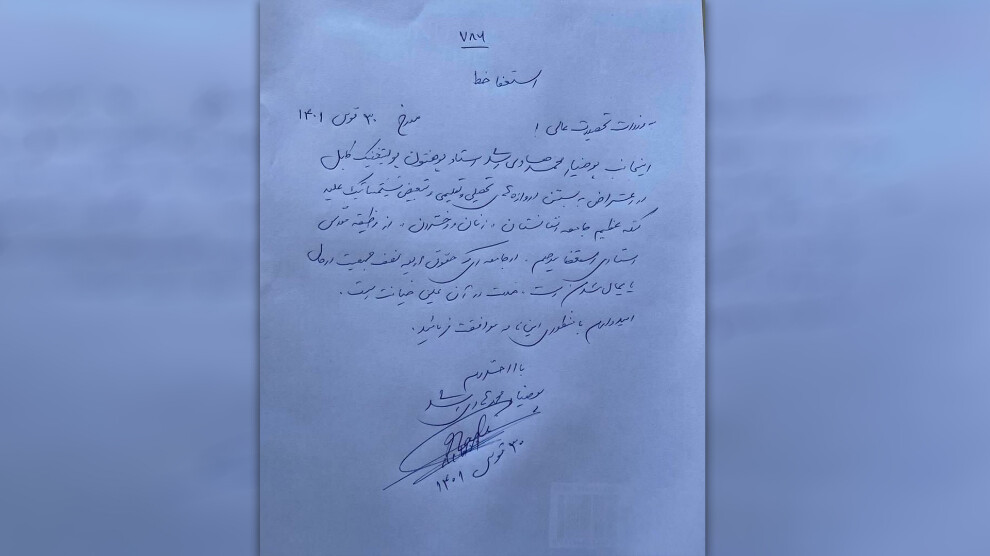 ۷۸۶
استعفا خط
به وزارت تحصیلات عالی ! مورخ ۳۰ قوس ۱۴۰۱
اینجانب پوهنیار محمد هادی راشد استاد پوهنتون پولیتخنیک کابل
در اعتراض به بستن دروازه های تحصیلی و تعلیمی و تبعیض سیستماتیک علیه
عظیم جامعه افغانستان ، زنان و دختران ، از وظیفه مقدس
استادی استعفا میدهم . در جامعه ای که حقوق اولیه نصف جمعیت در حال
پایمال شدن است ، خدمت در آن عین خیانت است .
امیدوارم با منظوری اینجانب موافقت فرمائید .
با احترام
پوهنیار محمد هادی راشد
۳۰ قوس ۱۴۰۱